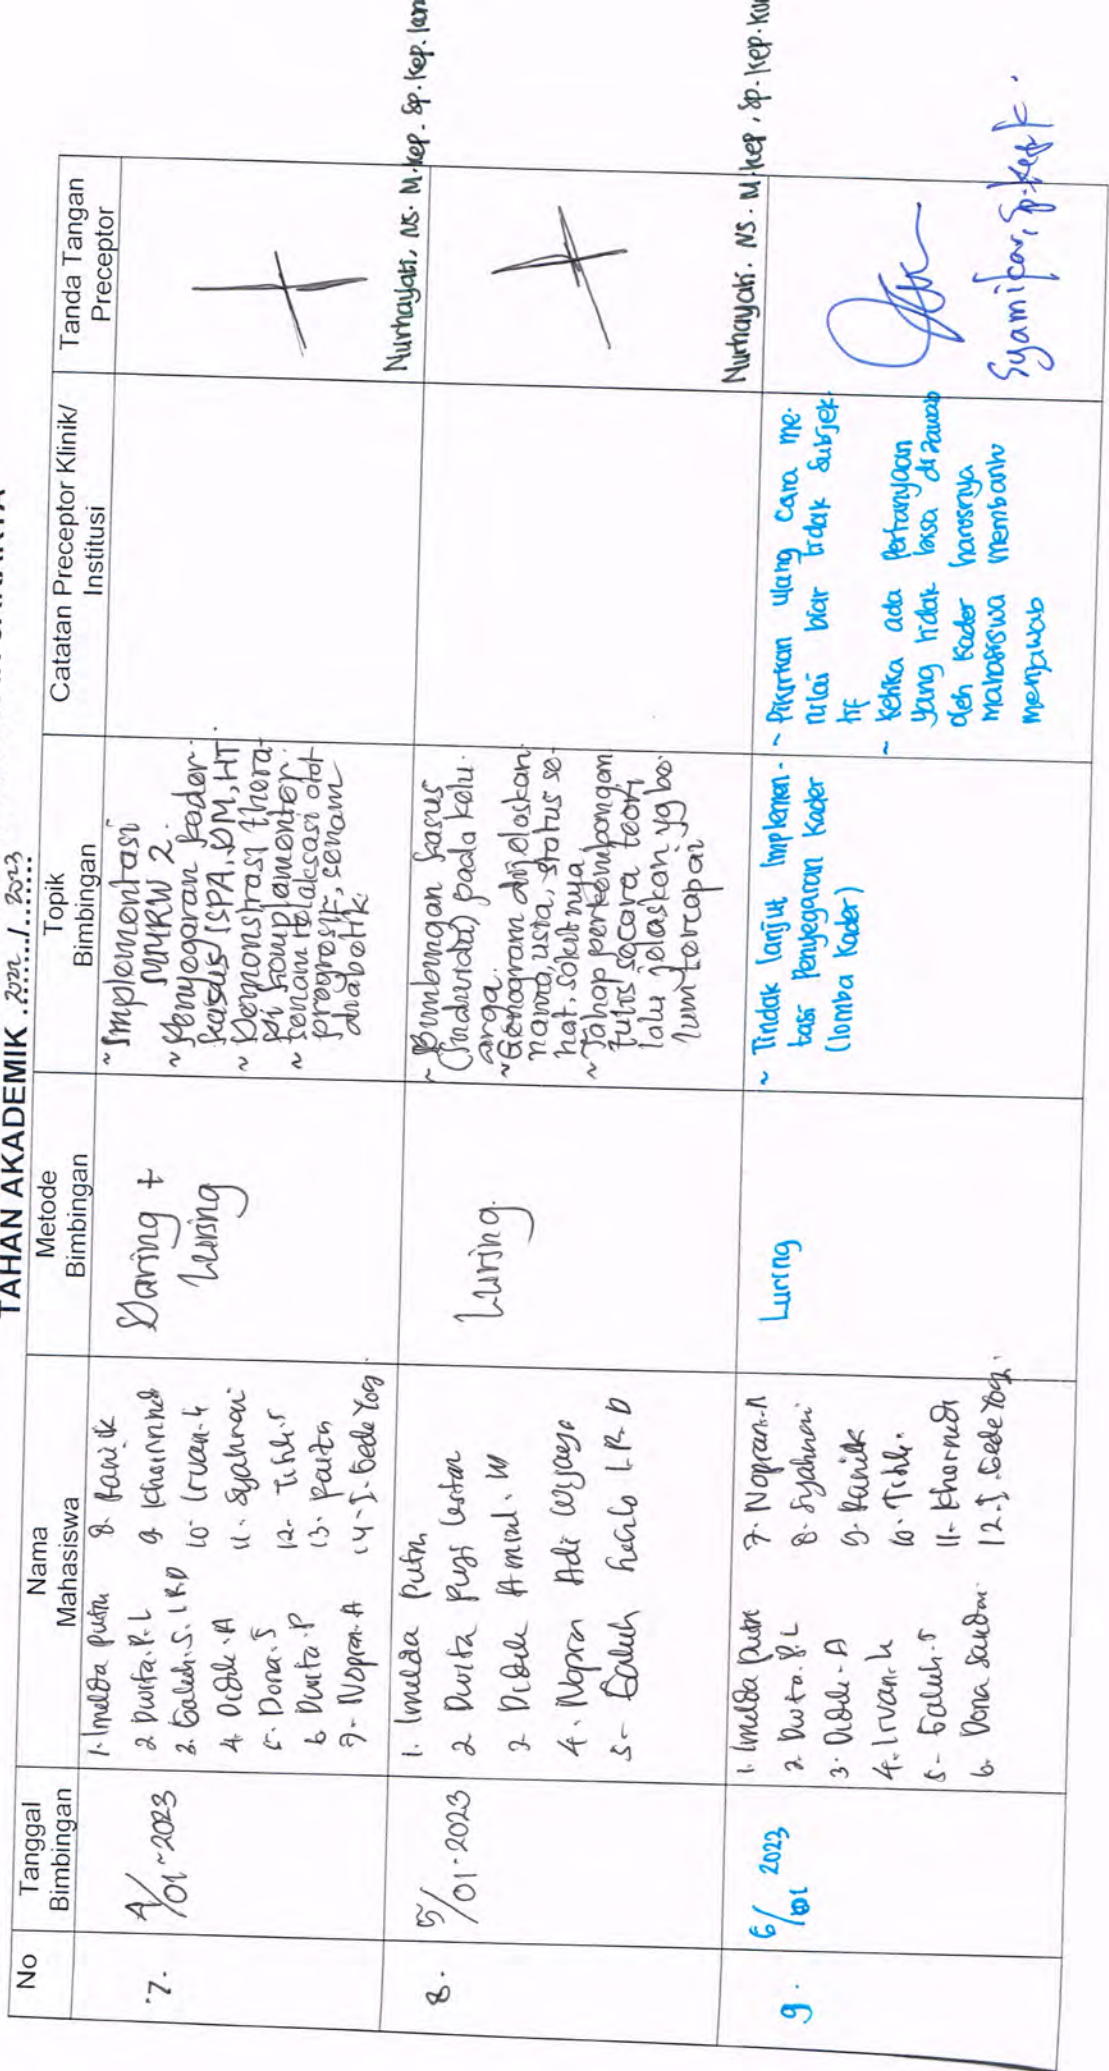 TAHAN AKADEMIK 2022 / 2023
No
Tanggal
Bimbingan
Nama
Mahasiswa
Metode
Bimbingan
Topik
Bimbingan
Catatan Preceptor Klinik/
Institusi
Tanda Tangan
Preceptor
7.
4/01-2023
1. Imelda Putri
2 Dwita.P.L
3. Galuh.S.I.R.D
4. Didik.A
5. Dona.S
6 Dwita.P
7. Nopran.A
8. Ranik
9.
10. Irvan.H
11. Syahnai
12. Titik.S
13. Paita
14. I. Gede Yogi.
Daring +
Luring
~ Implementasi
MMRW 2.
~ Penyegaran kader.
kasus ISPA, DM, HT.
~ Demonstrasi thera-
pi komplementer
~ senam relaksasi otot
progresif, senam
diabetik.
Nurhayati, NS. M.Kep. Sp.Kep.
8.
5/01-2023
1. Imelda Putri
2 Dwita Puji Lestari
3 Didik Amin.W
4. Nopran Adi Wijaya
5- Galuh I.R.D
Luring.
~ Bimbingan kasus
(Individu) pada kelu-
arga.
~ Genogram dijelaskan
nama, usia, status se-
hat, sakitnya
~ Tahap perkembangan
tulis secara teori,
lalu jelaskan yg be-
lum tercapai
Nurhayati. NS. M.Kep, Sp.Kep.
9.
6/01 2023
1. Imelda Putri
2. Dwita.P.L
3. Didik-A
4. Irvan.h
5- Galuh.S
6. Dona Sandra
7. Nopran.A
8. Syahnai
9. Ranik
10. Titik.
11.
12. I. Gede Yogi.
Luring
~ Tindak lanjut implemen-
tasi Penyegaran Kader
(lomba Kader)
~ Pikirkan ulang cara me-
nilai biar tidak subjek-
tif
~ Ketika ada pertanyaan
yang tidak bisa dijawab
oleh kader harusnya
mahasiswa membantu
menjawab
Syamikar, Sp.Kep.K.